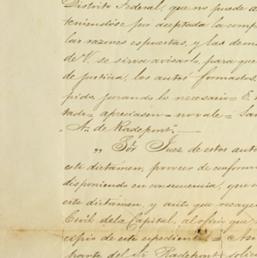 Distrito Federal, que no puede a
teniendose por aceptada la comp
las razones espuestas, y las dem
de V. se sirva avisarlo, para que
de justicia, los autos formados,
pido jurando lo necesario = E.
tado = apreciasen = no vale = San
A. de Radepont.
" Sor Juez de estos auto
este dictámen, proveer de conform
disponiendo en consecuencia, que
este dictámen, y auto que recaye
Civil de la Capital, al ofício que
copia de este espediente =
trante del Sr. Radepont